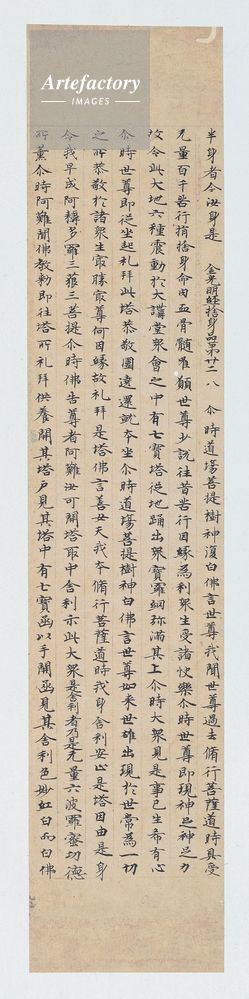 Artefactory
IMAGES
半身者今汝身是 金光明經捨身品第廿二 八 尒時道場菩提樹神復白佛言世尊我聞世尊過去脩行菩薩道時具受
无量百千苦行捐捨身命肉血骨髓唯願世尊少說往昔苦行因緣為利衆生受諸快樂尒時世尊即現神足神足力
故令此大地六種震動於大講堂衆會之中有七寶塔從地踊出衆寶羅網弥滿其上尒時大衆見是事已生希有心
尒時世尊即從坐起礼拜此塔恭敬圍遶還就本坐尒時道場菩提樹神白佛言世尊如来世雄出現於世常為一切
之所恭敬於諸衆生寂勝寂尊何因緣故礼拜是塔佛言善女天我本脩行菩薩道時我身舍利安止是塔因由是身
令我早成阿耨多羅三藐三菩提尒時佛告尊者阿難汝可開塔取中舍利示此大衆是舍利者乃是无量六波羅蜜功德
所薰尒時阿難聞佛教勅即往塔所礼拜供養開其塔戶見其塔中有七寶函以手開函見其舍利色妙紅白而白佛